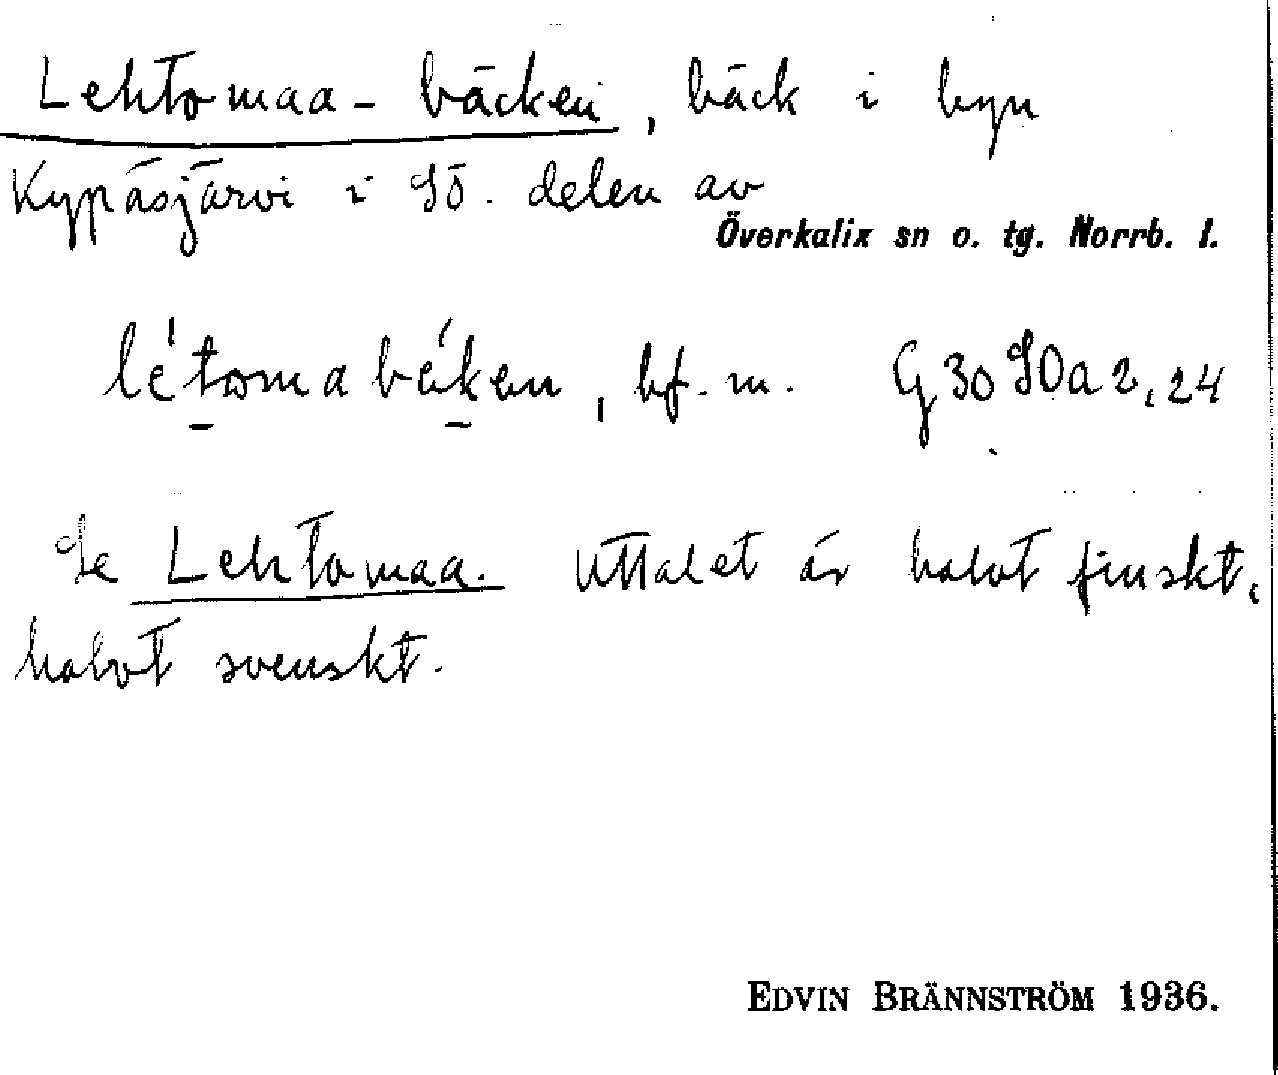 Lehtomaa-bäcken, bäck i byn
Kypäsjärvi i SÖ. delen av
Överkalix sn o. tg. Norrb. l.
bf. m. G 30 SO a 2, 24
Se Lehtomaa. Uttalet är halvt finskt,
halvt svenskt.
EDVIN BRÄNNSTRÖM 1936.